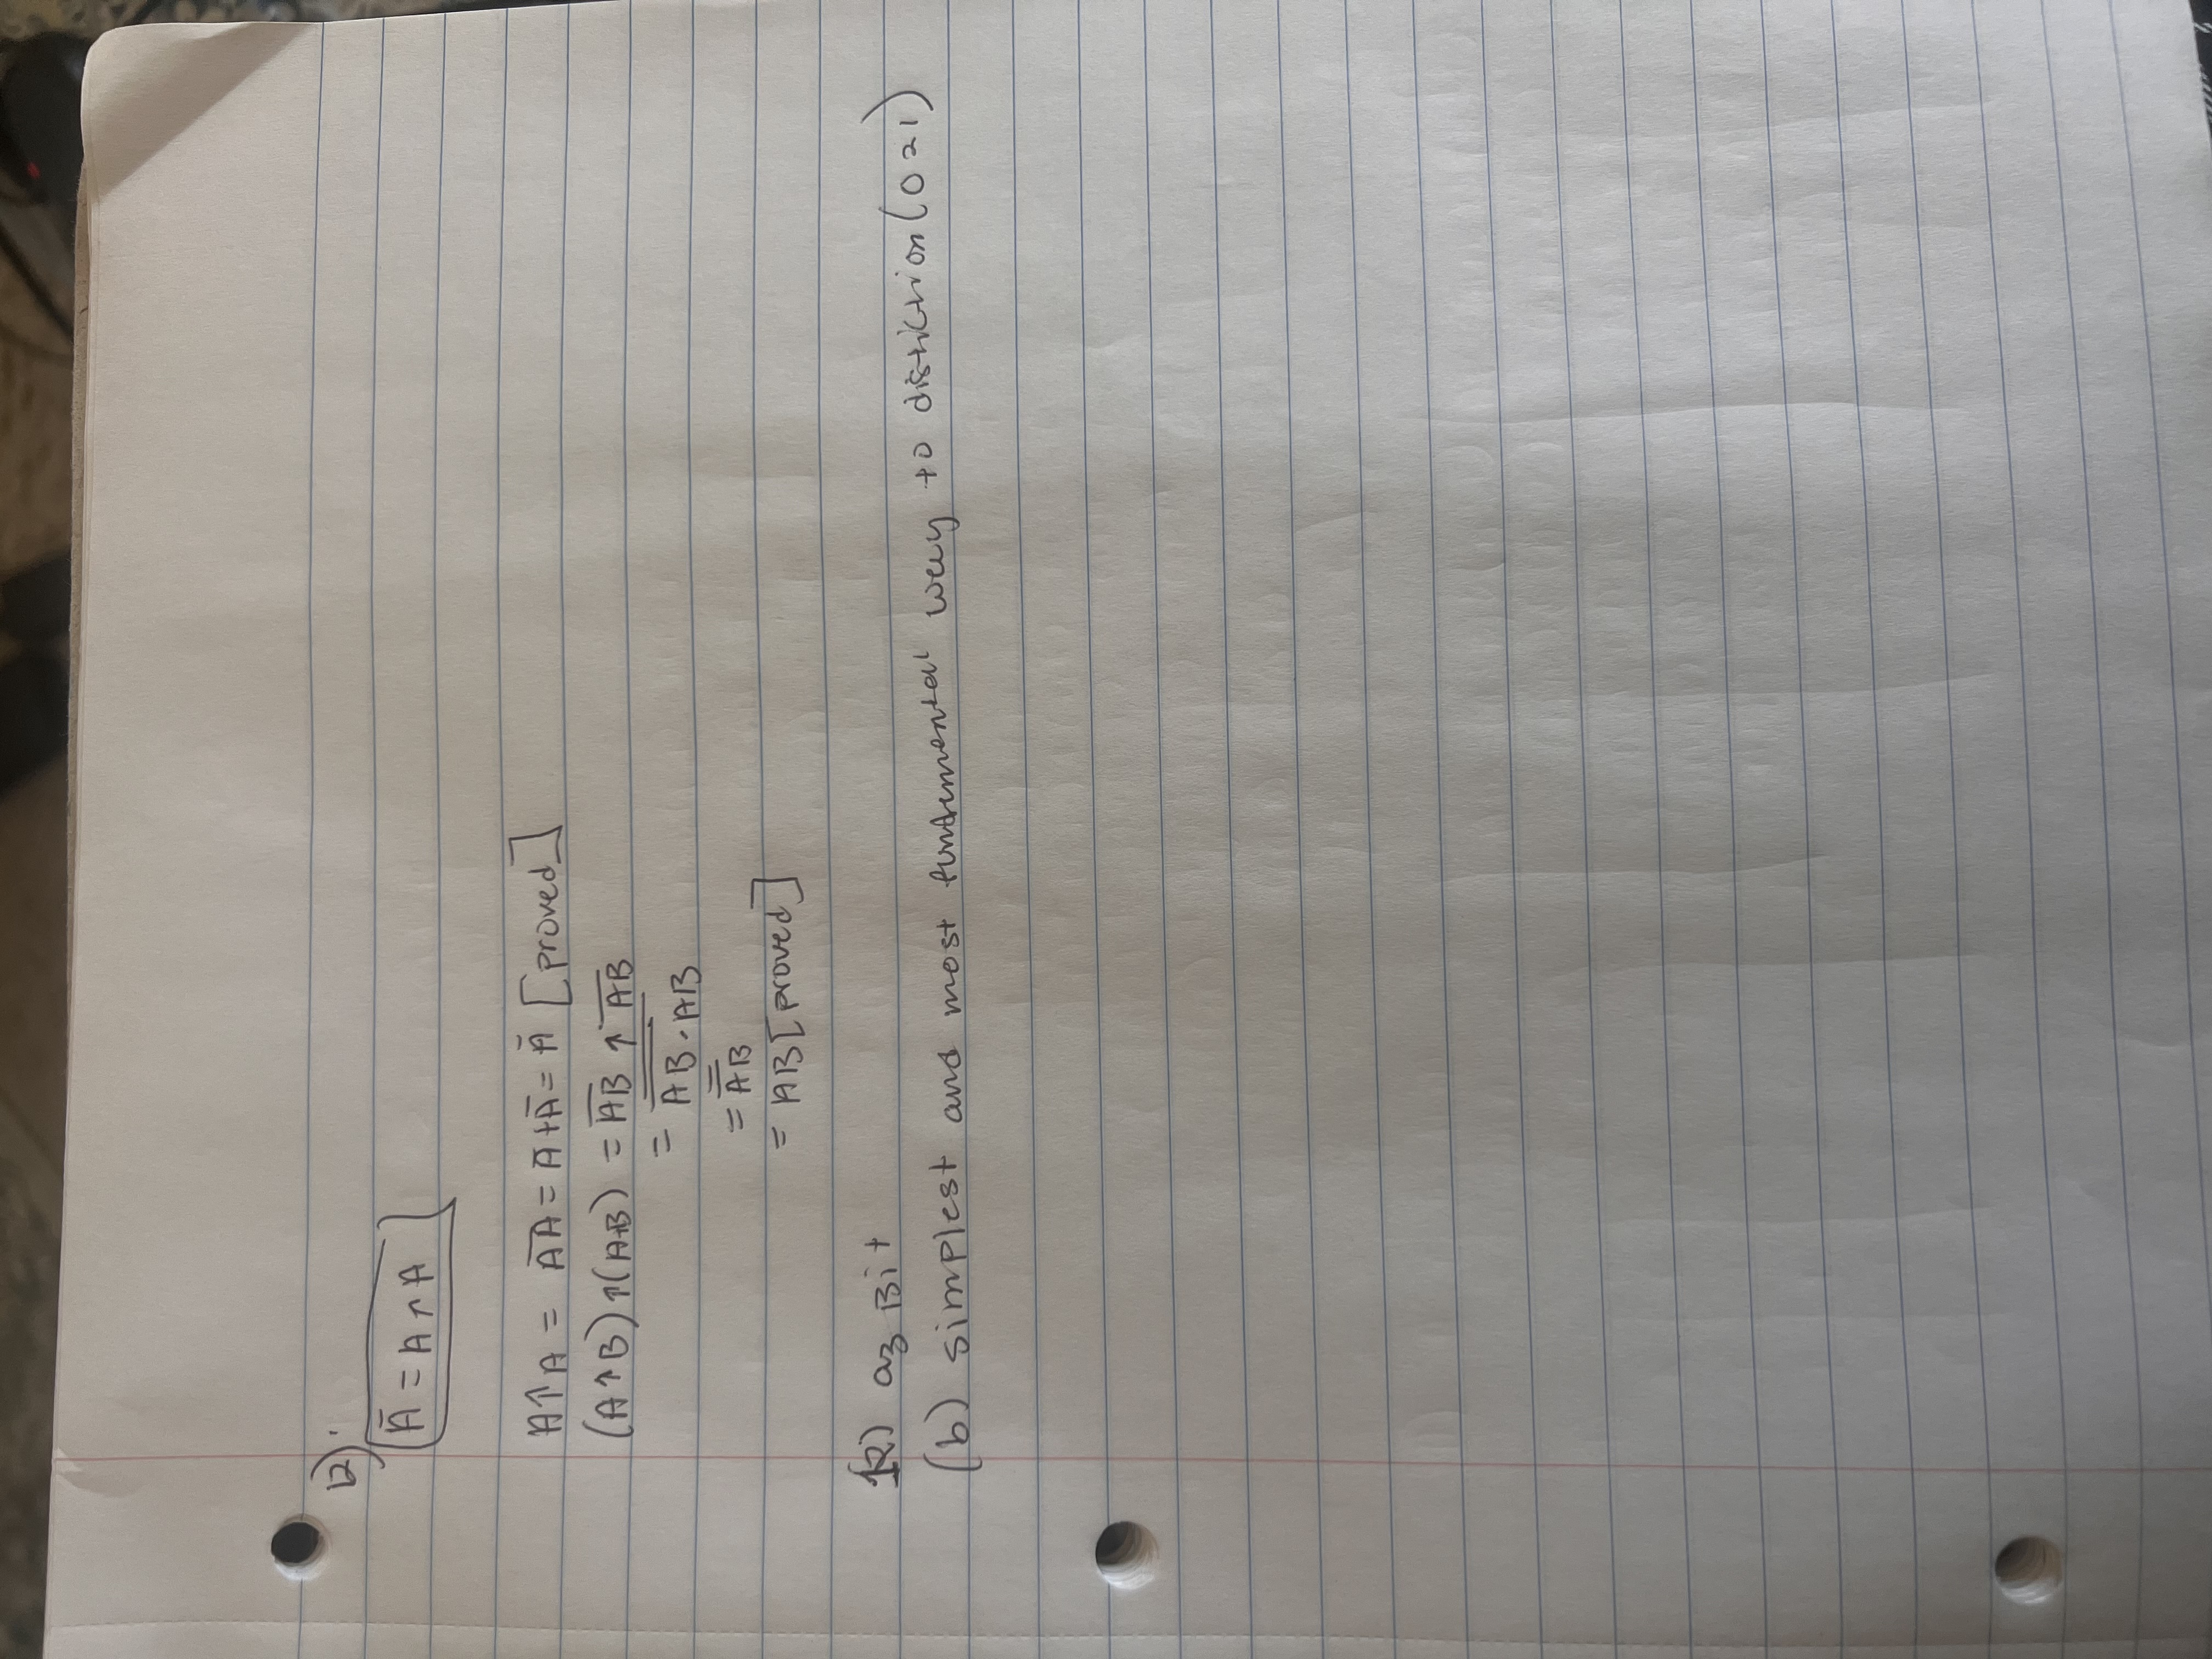 12)
Ā = A ↑ A
A↑A = A̅A̅ = Ā+Ā = Ā [proved]
(A↑B)↑(A↑B) = A̅B̅ ↑ A̅B̅
= A̿B̿·A̿B̿
= A̿B̿
= AB [proved]
12) a) Bit
(b) simplest and most fundemental way to distiction (0 21)